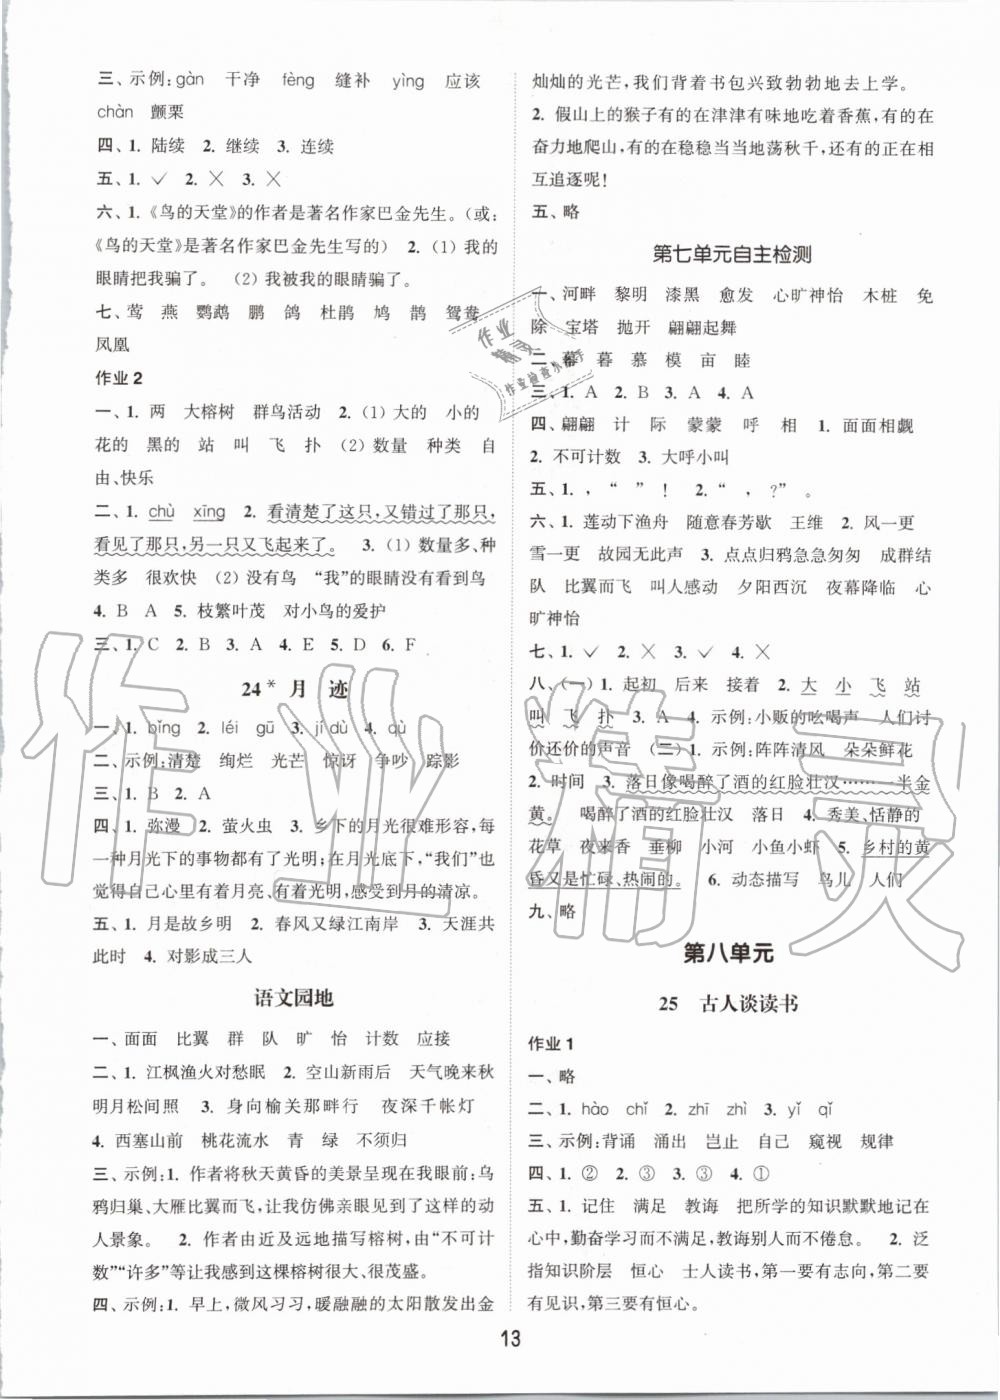 三、示例:gàn　干净　fèng　缝补　yìng　应该
chàn　颤栗
四、1. 陆续　2. 继续　3. 连续
五、1. ✓　2. ╳　3. ╳
六、1.《鸟的天堂》的作者是著名作家巴金先生。(或:
《鸟的天堂》是著名作家巴金先生写的)　2.(1) 我的
眼睛把我骗了。　(2) 我被我的眼睛骗了。
七、莺　燕　鹦鹉　鹏　鸽　杜鹃　鸠　鹊　鸳鸯
凤凰
作业2
一、1. 两　大榕树　群鸟活动　2.(1) 大的　小的
花的　黑的　站　叫　飞　扑　(2) 数量　种类　自
由、快乐
二、1. chù　xīng　2. 看清楚了这只,又错过了那只,
看见了那只,另一只又飞起来了。　3.(1) 数量多、种
类多　很欢快　(2) 没有鸟　“我”的眼睛没有看到鸟
4. B　A　5. 枝繁叶茂　对小鸟的爱护
三、1. C　2. B　3. A　4. E　5. D　6. F
24* 月　迹
一、1. bǐng　2. léi　gū　3. jí dù　4. qù
二、示例:清楚　绚烂　光芒　惊讶　争吵　踪影
三、1. B　2. A
四、1. 弥漫　2. 萤火虫　3. 乡下的月光很难形容,每
一种月光下的事物都有了光明;在月光下,“我们”也
觉得自己心里有着月亮、有着光明,感受到月的清凉。
五、1. 月是故乡明　2. 春风又绿江南岸　3. 天涯共
此时　4. 对影成三人
语文园地
一、面面　比翼　群　队　旷　怡　计数　应接
二、1. 江枫渔火对愁眠　2. 空山新雨后　天气晚来秋
明月松间照　3. 身向榆关那畔行　夜深千帐灯
4. 西塞山前　桃花流水　青　绿　不须归
三、示例:1. 作者将秋天黄昏的美景呈现在我眼前:乌
鸦归巢、大雁比翼而飞,让我仿佛亲眼见到了这样的动
人景象。　2. 作者由近及远地描写榕树,用“不可计
数”“许多”等让我感到这棵榕树很大、很茂盛。
四、示例:1. 早上,微风习习,暖融融的太阳散发出金
灿灿的光芒,我们背着书包兴致勃勃地去上学。
2. 假山上的猴子有的在津津有味地吃着香蕉,有的在
奋力地爬山,有的在稳稳当当地荡秋千,有的正在相
互追逐呢!
五、略
第七单元自主检测
一、河畔　黎明　漆黑　愈发　心旷神怡　木桩　免
除　宝塔　抛开　翩翩起舞
二、幕　暮　慕　模　亩　睦
三、1. A　2. B　3. A　4. A
四、翩翩　计　际　蒙蒙　呼　相　1. 面面相觑
2. 不可计数　3. 大呼小叫
五、1. ,　“　”　!　2. “　,　?”　。
六、1. 莲动下渔舟　随意春芳歇　王维　2. 风一更
雪一更　故园无此声　3. 点点归鸦急急匆匆　成群结
队　比翼而飞　叫人感动　夕阳西沉　夜幕降临　心
旷神怡
七、1. ✓　2. ╳　3. ✓　4. ╳
八、(一) 1. 起初　后来　接着　2. 大　小　飞　站
叫　飞　扑　3. A　4. 示例:小贩的吆喝声　人们讨
价还价的声音　(二) 1. 示例:阵阵清风　朵朵鲜花
2. 时间　3. 落日像喝醉了酒的红脸壮汉………半金
黄。　喝醉了酒的红脸壮汉　落日　4. 秀美、恬静的
花草　夜来香　垂柳　小河　小鱼小虾　5. 乡村的黄
昏又是忙碌、热闹的。　6. 动态描写　鸟儿　人们
九、略
第八单元
25　古人谈读书
作业1
一、略
二、1. hào　chǐ　2. zhī　zhì　3. yǐ　qǐ
三、示例:背诵　涌出　岂止　自己　窥视　规律
四、1. ②　2. ③　3. ③　4. ①
五、1. 记住　满足　教诲　把所学的知识默默地记在
心中,勤奋学习而不满足,教诲别人而不倦怠。　2. 泛
指知识阶层　恒心　士人读书,第一要有志向,第二要
有见识,第三要有恒心。
13
作业
精灵
作业检查小助手
作业精灵